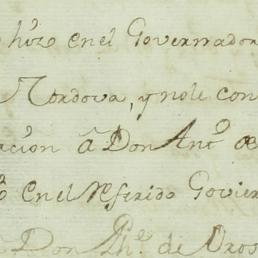 hizo en el Governador
Cordova, y no le con
acion â Don Ant.º de
en el referido Govier
Don Ph.e de Oros